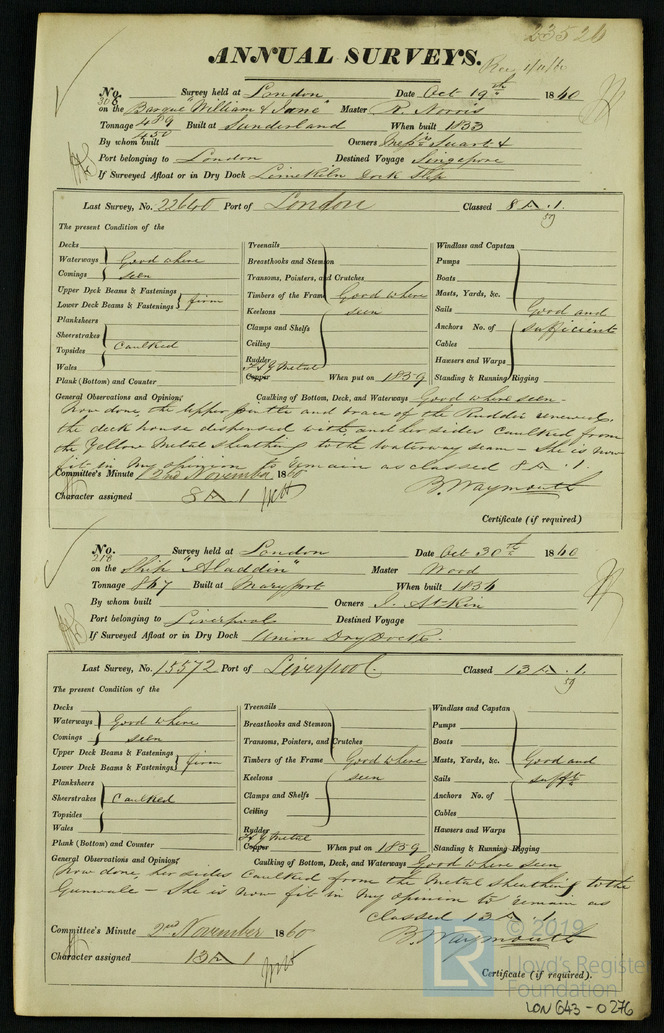 23526
ANNUAL SURVEYS.
No. 308 Survey held at London Date Oct 19th 1840
on the Barque "William & Jane" Master R. Norris
Tonnage 489 450 Built at Sunderland When built 1833
By whom built Owners Messrs Stuart &
Port belonging to London Destined Voyage Singapore
If Surveyed Afloat or in Dry Dock Limekiln Dock Slip
Last Survey, No. 22640 Port of London Classed 8 A .1.
39
The present Condition of the
Decks
Waterways Good where
Comings seen
Upper Deck Beams & Fastenings
Lower Deck Beams & Fastenings firm
Planksheers
Sheerstrakes
Topsides Caulked
Wales
Plank (Bottom) and Counter
Treenails
Breasthooks and Stemson
Transoms, Pointers, and Crutches
Timbers of the Frame Good where
Keelsons seen
Clamps and Shelfs
Ceiling
Rudder
Y Metal
Copper When put on 1839
Windlass and Capstan
Pumps
Boats
Masts, Yards, &c.
Sails Good and
Anchors No. of sufficient
Cables
Hawsers and Warps
Standing & Running Rigging
General Observations and Opinion, Caulking of Bottom, Deck, and Waterways Good where seen -
Now done, the upper pintle and brace of the Rudder renewed,
the deck house dispensed with and her sides Caulked from
the Yellow Metal Sheathing to the waterway seam - She is now
fit in my opinion to remain as classed 8 A .1.
Committee's Minute 2nd November 1840
B. Waymouth
Character assigned 8 A 1
Certificate (if required)
No. 218 Survey held at London Date Oct 30th 1840
on the Ship "Aladdin" Master Wood
Tonnage 847 Built at Maryport When built 1834
By whom built Owners J. Atkin
Port belonging to Liverpool Destined Voyage
If Surveyed Afloat or in Dry Dock Union Dry Dock.
Last Survey, No. 15572 Port of Liverpool Classed 13 A .1.
39
The present Condition of the
Decks
Waterways Good where
Comings seen
Upper Deck Beams & Fastenings
Lower Deck Beams & Fastenings firm
Planksheers
Sheerstrakes Caulked
Topsides
Wales
Plank (Bottom) and Counter
Treenails
Breasthooks and Stemson
Transoms, Pointers, and Crutches
Timbers of the Frame Good where
Keelsons seen
Clamps and Shelfs
Ceiling
Rudder
Y Metal
Copper When put on 1839
Windlass and Capstan
Pumps
Boats
Masts, Yards, &c. Good and
Sails sufft
Anchors No. of
Cables
Hawsers and Warps
Standing & Running Rigging
General Observations and Opinion, Caulking of Bottom, Deck, and Waterways Good where seen
Now done, her sides Caulked from the Metal Sheathing to the
Gunwale - She is now fit in my opinion to remain as
classed 13 A 1.
Committee's Minute 2nd November 1840
B. Waymouth
Character assigned 13 A 1
Certificate (if required).
© 2019
LR Lloyd's Register
Foundation
LON 643-0276